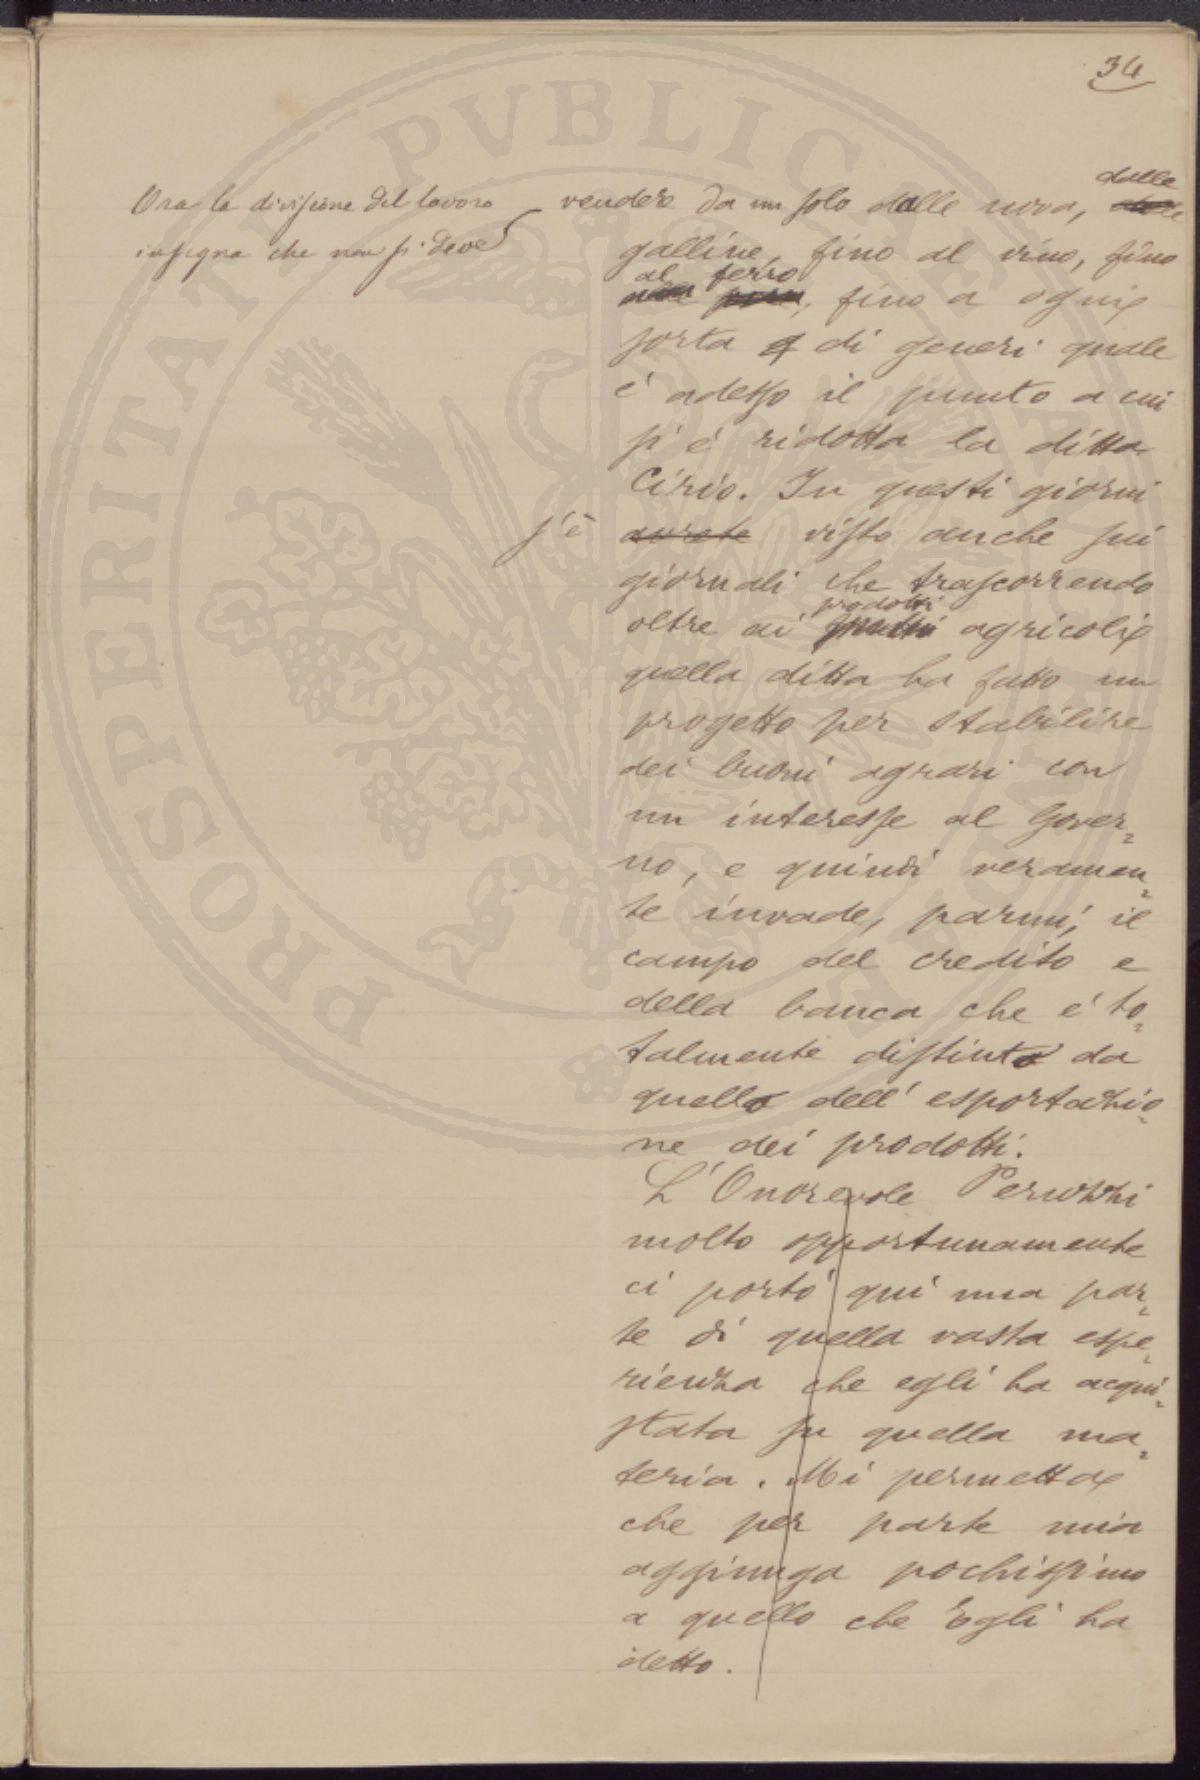 34
Ora la divisione del lavoro
insegna che non si deve
vendere da un solo dalle uova, dalle
galline, fino al vino, fino
al ferro, fino a ogni
sorta di generi quale
è adesso il punto a cui
si è ridotta la ditta
Cirio. In questi giorni
s'è avrete visto anche sui
giornali che trascorrendo
oltre ai prodotti agricoli
quella ditta ha fatto un
progetto per stabilire
dei buoni agrari con
un interesse al Gover-
no, e quindi veramen-
te invade, parmi, il
campo del credito e
della banca che è to-
talmente distinto da
quello dell'esportazio-
ne dei prodotti.
L'Onorevole Peruzzi
molto opportunamente
ci portò qui una par-
te di quella vasta espe-
rienza che egli ha acqui-
stata su quella ma-
teria. Mi permetta
che per parte mia
aggiunga pochissimo
a quello che Egli ha
detto.
PROSPERITATI PVBLICAE AVGENDAE